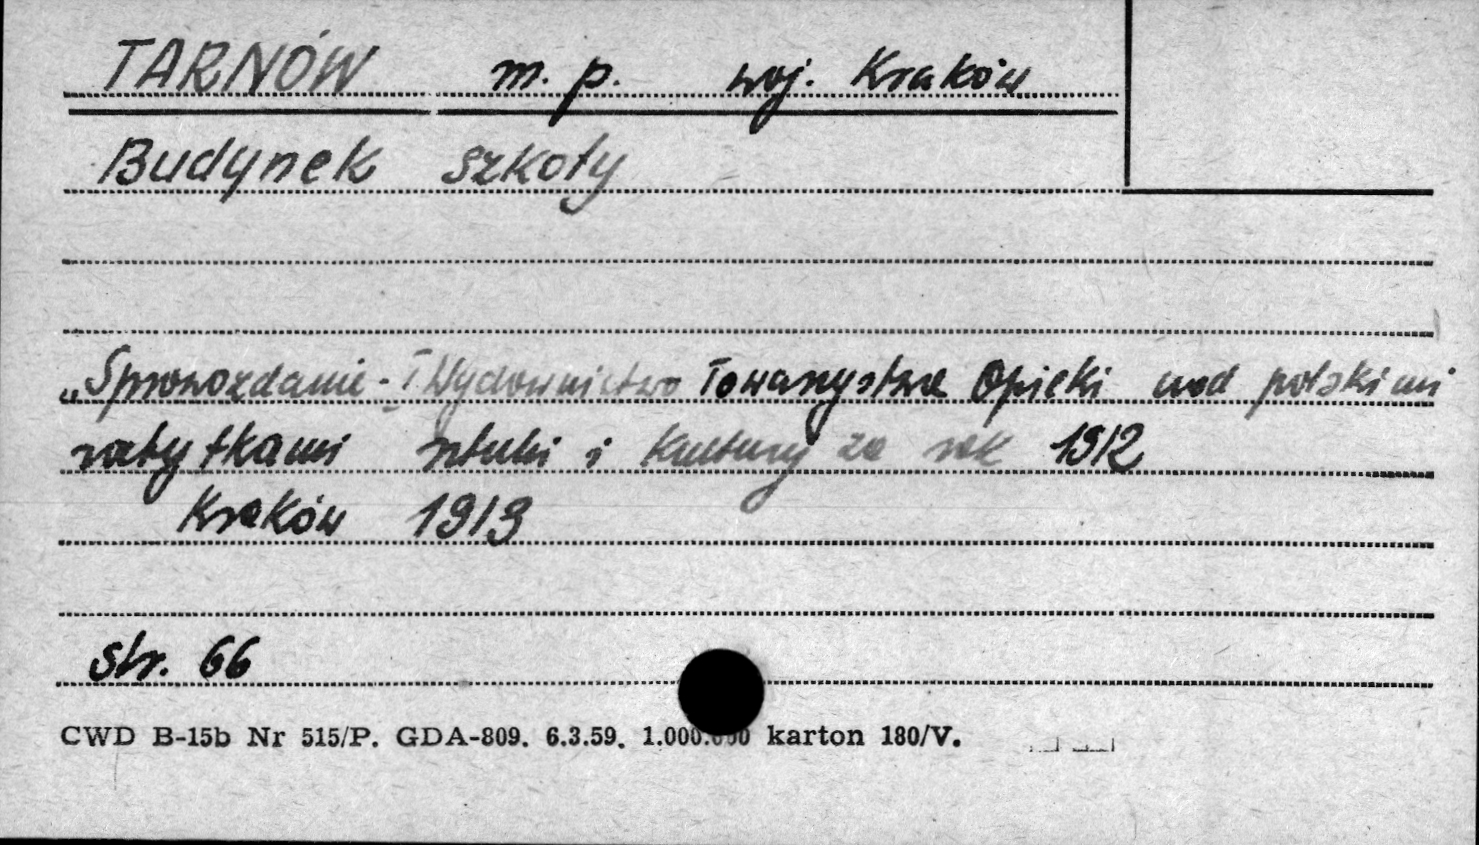 TARNÓW m. p. woj. Kraków
Budynek szkoły
„Sprawozdanie - i Wydawnictwo Towarzystwa Opieki nad polskimi
zabytkami sztuki i kultury za rok 1912
Kraków 1913
str. 66
CWD B-15b Nr 515/P. GDA-809. 6.3.59. 1.000.000 karton 180/V.